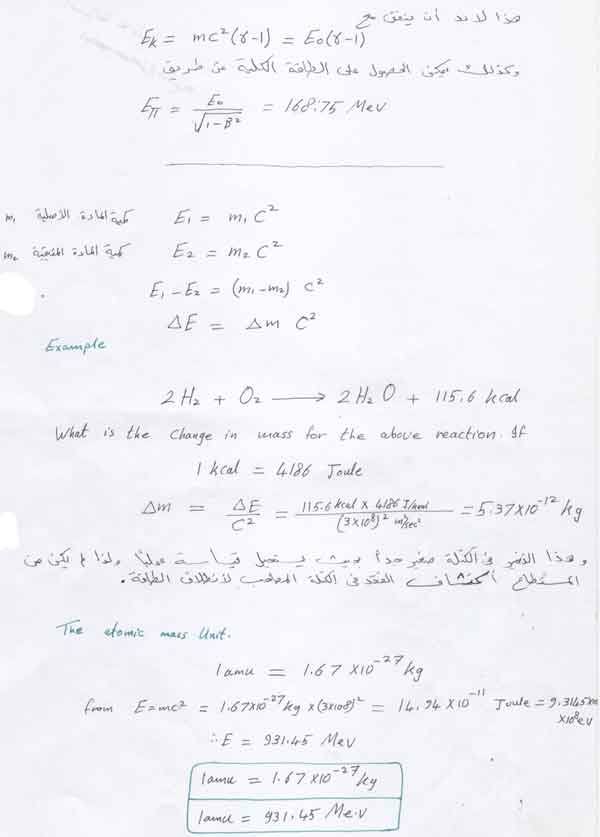 هذا لابد أن يتفق مع
E_k = mc²(γ-1) = E₀(γ-1)
وكذلك يمكن الحصول على الطاقة الكلية عن طريق
E_π = E₀/√(1-β²) = 168.75 MeV
كمية المادة الأصلية m₁ E₁ = m₁ C²
كمية المادة المتبقية m₂ E₂ = m₂ C²
E₁ - E₂ = (m₁-m₂) C²
ΔE = Δm C²
Example
2H₂ + O₂ ⟶ 2H₂O + 115.6 kcal
What is the change in mass for the above reaction. If
1 kcal = 4186 Joule
Δm = ΔE/C² = (115.6 kcal x 4186 J/kcal)/((3x10⁸)² m²/sec²) = 5.37x10⁻¹² kg
وهذا التغير في الكتلة صغير جداً بحيث يستحيل قياسه عملياً ولذا لم يكن من
المستطاع اكتشاف الفقد في الكتلة المصاحب لانطلاق الطاقة.
The atomic mass Unit.
1amu = 1.67 x10⁻²⁷ kg
from E=mc² = 1.67x10⁻²⁷ kg x(3x10⁸)² = 14.94 x10⁻¹¹ Joule = 9.3145 x10⁸ eV
∴E = 931.45 MeV
1amu = 1.67 x10⁻²⁷ kg
1amu = 931.45 Me.V